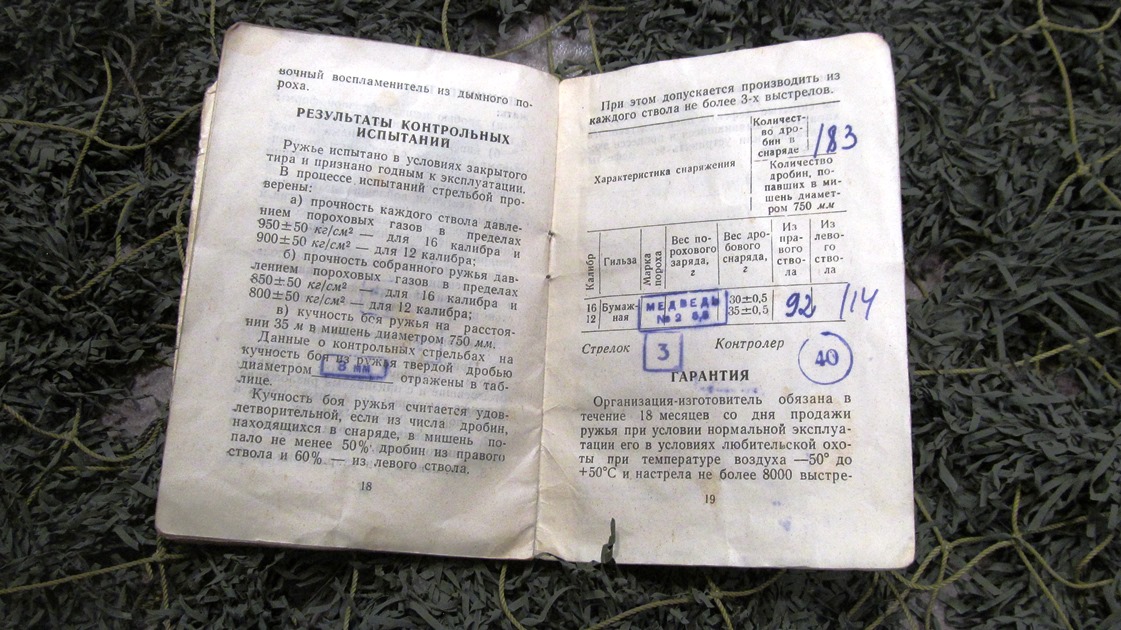 вочный воспламенитель из дымного по-
роха.
РЕЗУЛЬТАТЫ КОНТРОЛЬНЫХ
ИСПЫТАНИЙ
Ружье испытано в условиях закрытого
тира и признано годным к эксплуатации.
В процессе испытаний стрельбой про-
верены:
а) прочность каждого ствола давле-
нием пороховых газов в пределах
950±50 кг/см² — для 16 калибра и
900±50 кг/см² — для 12 калибра;
б) прочность собранного ружья дав-
лением пороховых газов в пределах
850±50 кг/см² — для 16 калибра и
800±50 кг/см² — для 12 калибра;
в) кучность боя ружья на расстоя-
нии 35 м в мишень диаметром 750 мм.
Данные о контрольных стрельбах на
кучность боя из ружья твердой дробью
диаметром 3 мм отражены в таб-
лице.
Кучность боя ружья считается удов-
летворительной, если из числа дробин,
находящихся в снаряде, в мишень по-
пало не менее 50% дробин из правого
ствола и 60% — из левого ствола.
18
При этом допускается производить из
каждого ствола не более 3-х выстрелов.
Характеристика снаряжения
Количест-
во дро-
бин в
снаряде
183
Количество
дробин, по-
павших в ми-
шень диамет-
ром 750 мм
Калибр
Гильза
Марка
пороха
Вес по-
рохового
заряда,
г
Вес дро-
бового
снаряда,
г
Из
пра-
вого
ство-
ла
Из
лево-
го
ство-
ла
16
12
Бумаж-
ная
МЕДВЕДЬ
№ 2
30±0,5
35±0,5
92
114
Стрелок 3 Контролер 40
ГАРАНТИЯ
Организация-изготовитель обязана в
течение 18 месяцев со дня продажи
ружья при условии нормальной эксплуа-
тации его в условиях любительской охо-
ты при температуре воздуха —50° до
+50°С и настрела не более 8000 выстре-
19